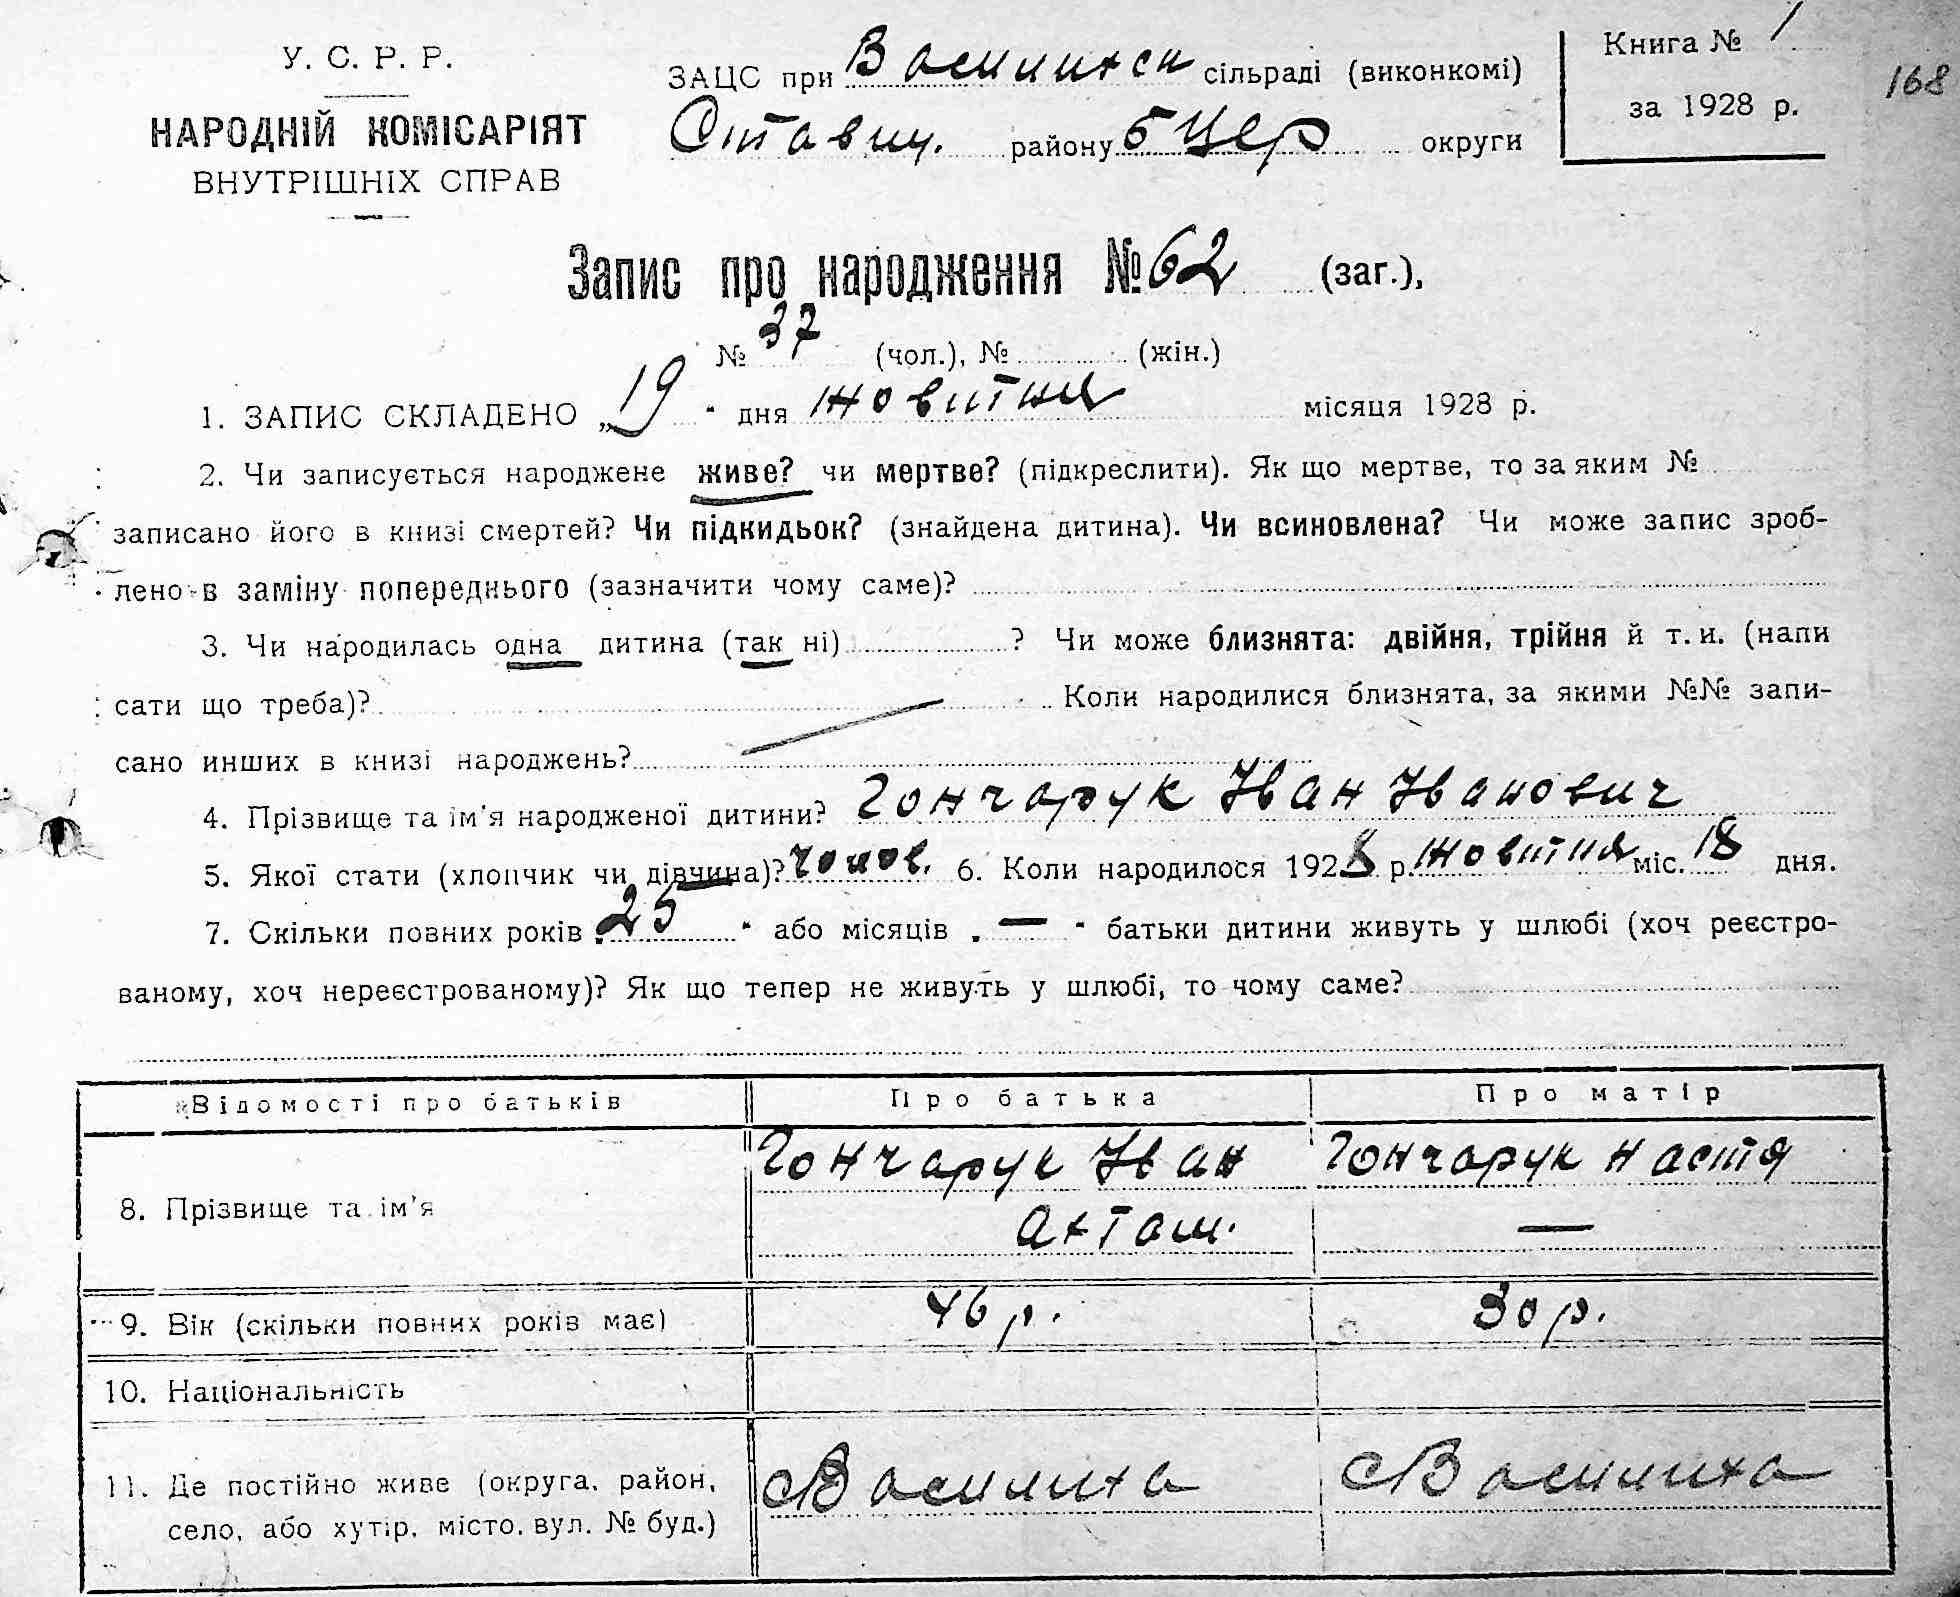 У. С. Р. Р.
НАРОДНІЙ КОМІСАРІЯТ
ВНУТРІШНІХ СПРАВ
ЗАЦС при Василихси сільраді (виконкомі)
Ставищ. району Б Цер округи
Книга № 1
за 1928 р.
168
Запис про народження № 62 (заг.),
№ 37 (чол.), № (жін.)
1. ЗАПИС СКЛАДЕНО „19" дня жовтня місяця 1928 р.
2. Чи записується народжене живе? чи мертве? (підкреслити). Як що мертве, то за яким №
записано його в книзі смертей? Чи підкидьок? (знайдена дитина). Чи всиновлена? Чи може запис зроб-
лено в заміну попереднього (зазначити чому саме)?
3. Чи народилась одна дитина (так ні) ? Чи може близнята: двійня, трійня й т. и. (напи
сати що треба)? Коли народилися близнята, за якими №№ запи-
сано инших в книзі народжень?
4. Прізвище та ім'я народженої дитини? Гончарук Іван Іванович
5. Якої стати (хлопчик чи дівчина)? чолов. 6. Коли народилося 1928 р. жовтня міс. 18 дня.
7. Скільки повних років „25" або місяців „—" батьки дитини живуть у шлюбі (хоч реєстро-
ваному, хоч нереєстрованому)? Як що тепер не живуть у шлюбі, то чому саме?
Відомості про батьків Про батька Про матір
8. Прізвище та ім'я Гончарук Іван Гончарук Настя
—
9. Вік (скільки повних років має) 46 р. 30 р.
10. Національність
11. Де постійно живе (округа, район, сВасилиха сВасилиха
село, або хутір, місто, вул. № буд.)